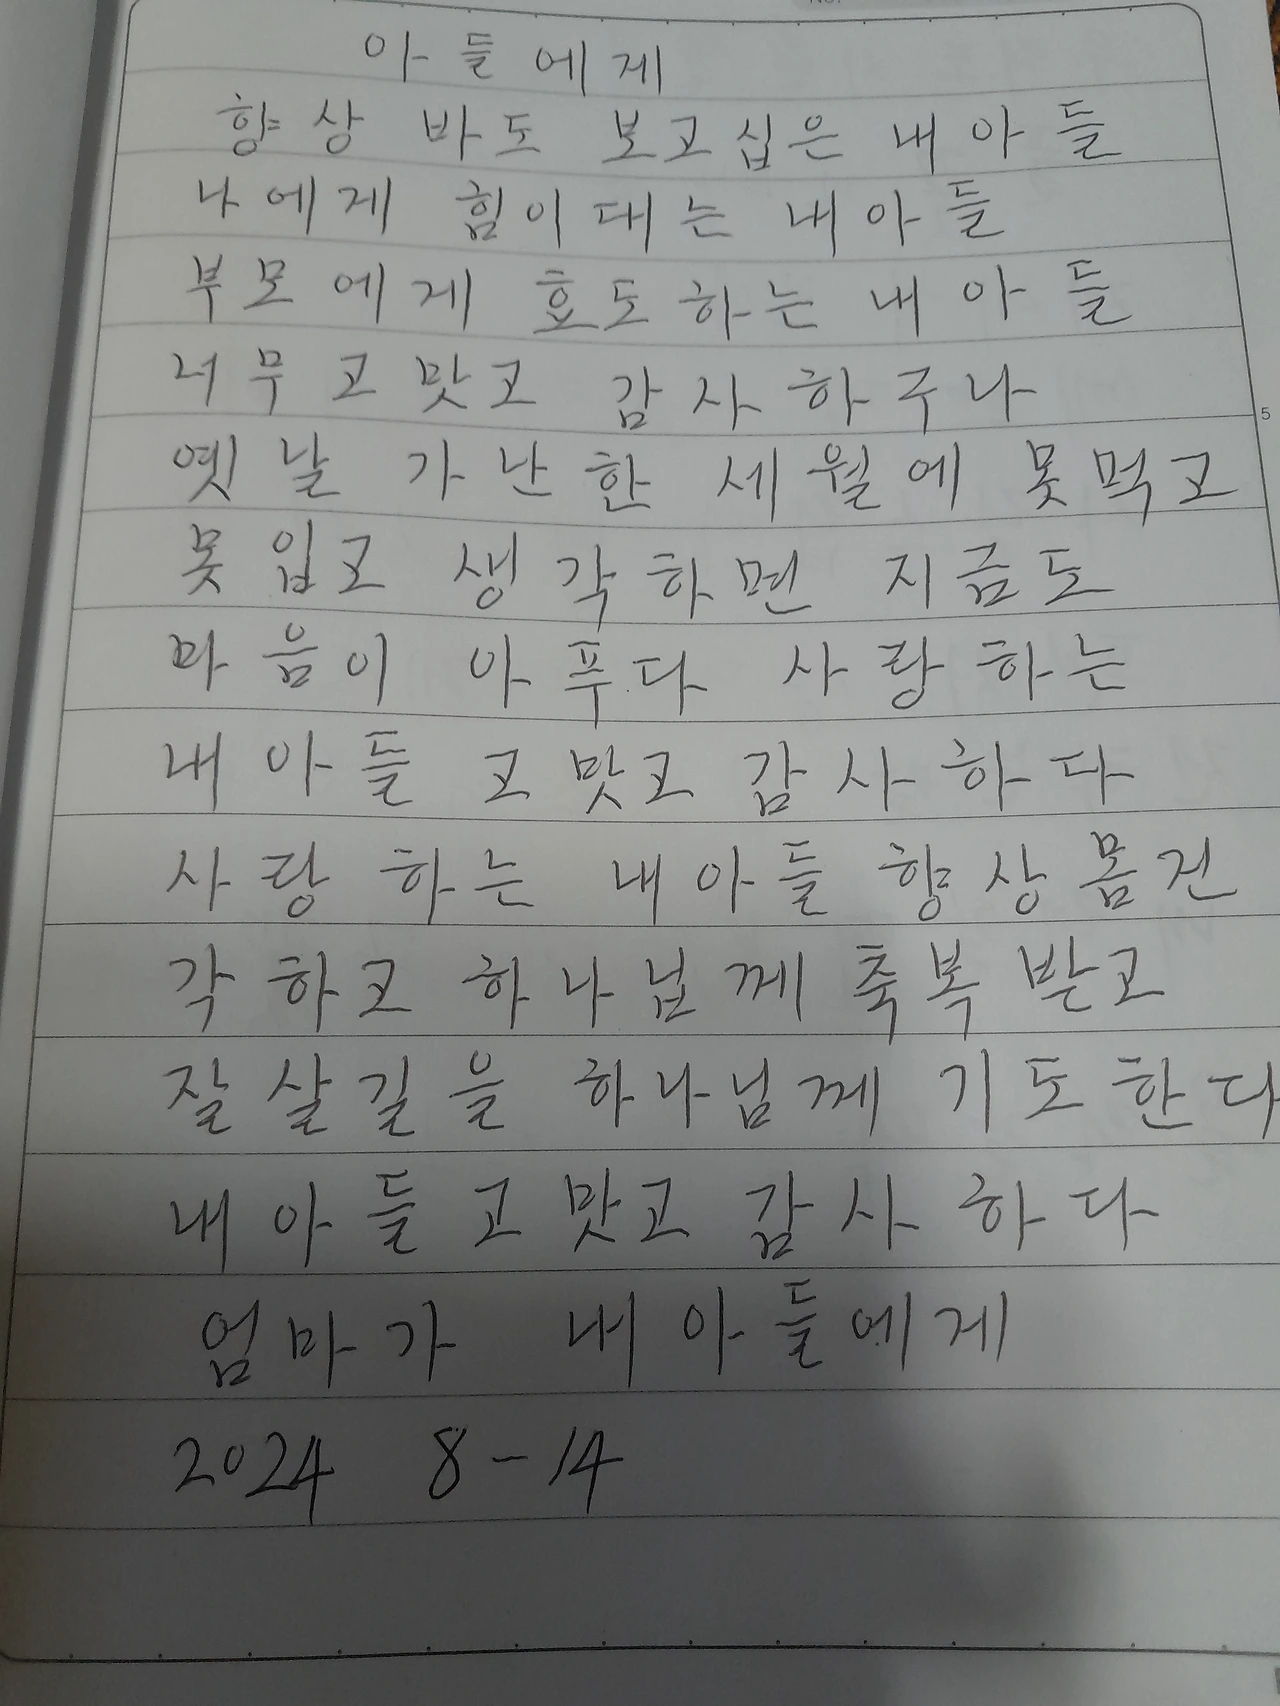 아들에게
향상 바도 보고십은 내 아들
나에게 힘이대는 내아들
부모에게 효도하는 내 아들
너무 고맛고 감사하구나
옛날 가난한 세월에 못먹고
못입고 생각하면 지금도
마음이 아푸다 사랑하는
내 아들 고맛고 감사하다
사랑하는 내아들 향상 몸건
각하고 하나님께 축복 받고
잘살길을 하나님께 기도한다
내 아들 고맛고 감사하다
엄마가 내 아들에게
2024 8-14
5